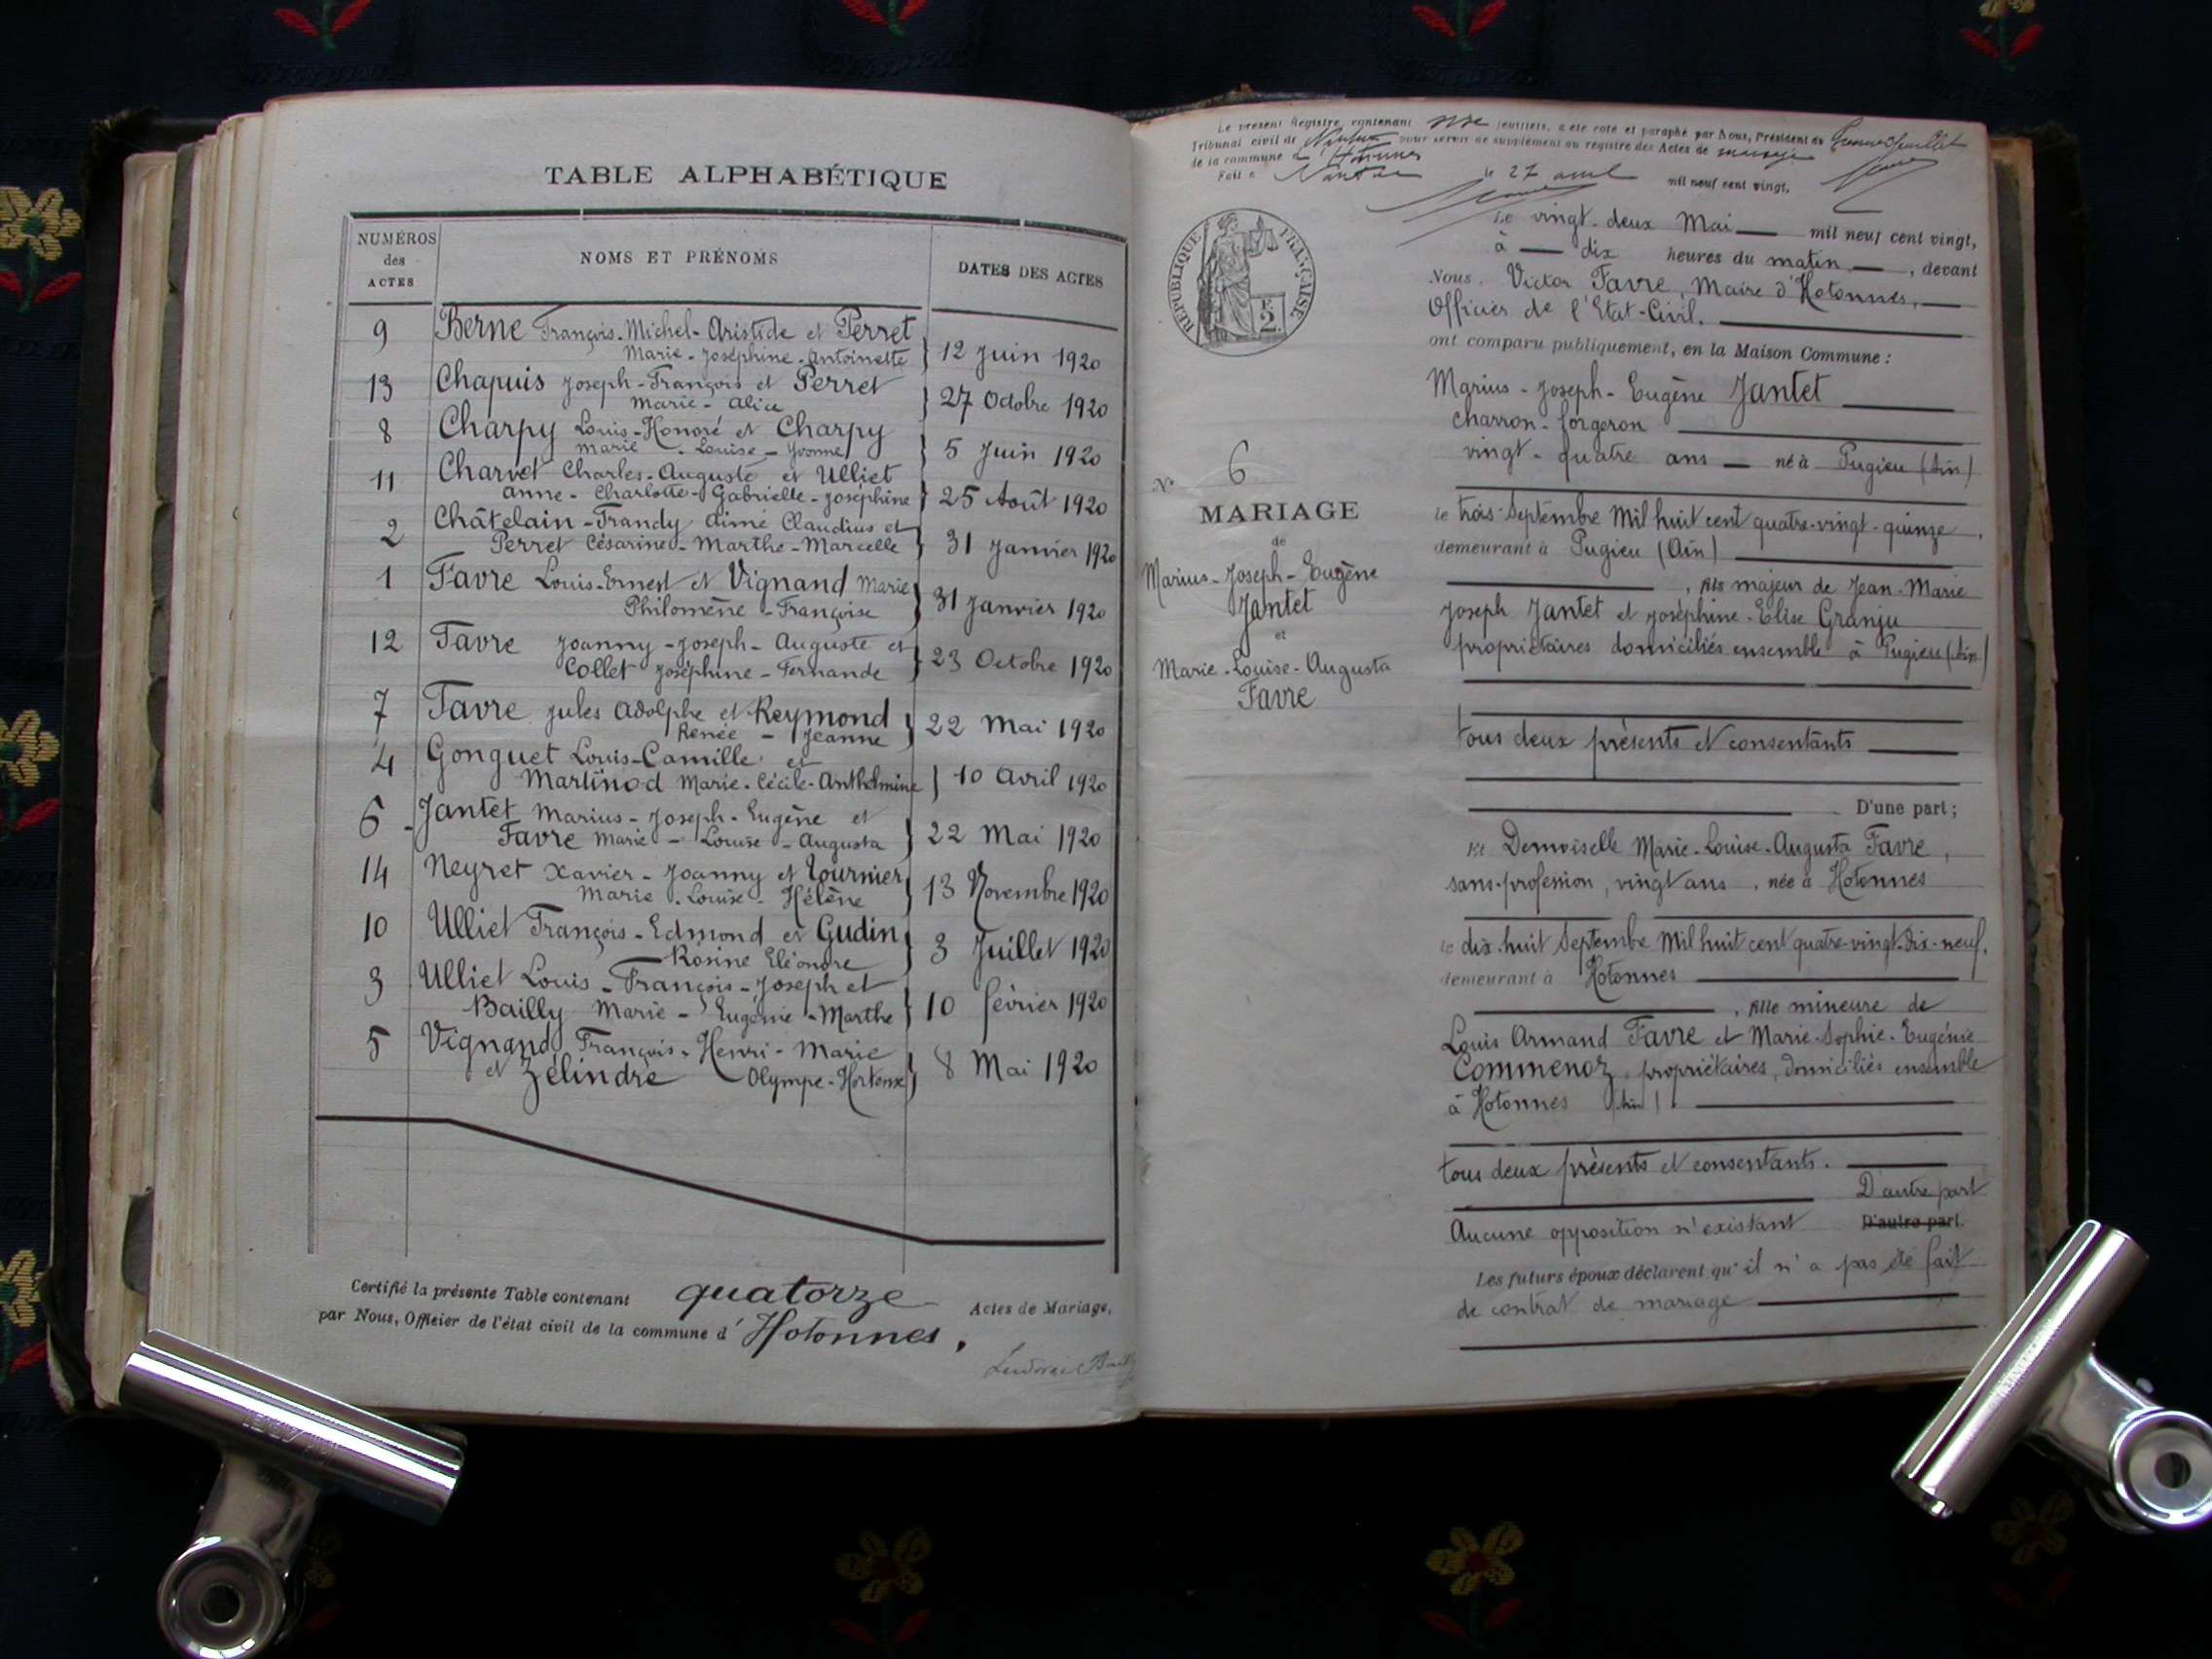 TABLE ALPHABÉTIQUE
NUMÉROS
des
ACTES
NOMS ET PRÉNOMS
DATES DES ACTES
9 Berne François-Michel-Aristide et Perret
Marie-Joséphine-Antoinette } 12 Juin 1920
13 Chapuis Joseph-François et Perret
Marie-Alice } 27 Octobre 1920
8 Charpy Louis-Honoré et Charpy
Marie-Louise-Yvonne } 5 Juin 1920
11 Charvet Charles-Auguste et Ulliet
Anne-Charlotte-Gabrielle-Joséphine } 25 Août 1920
2 Châtelain-Frandy Aimé Claudius et
Perret Césarine-Marthe-Marcelle } 31 Janvier 1920
1 Favre Louis-Ernest et Vignand Marie
Philomène-Françoise } 31 Janvier 1920
12 Favre Joanny-Joseph-Auguste et
Collet Joséphine-Fernande } 23 Octobre 1920
7 Favre Jules Adolphe et Reymond
Renée-Jeanne } 22 Mai 1920
4 Gonguet Louis-Camille et
Martinod Marie-Cécile-Anthelmine } 10 Avril 1920
6 Jantet Marius-Joseph-Eugène et
Favre Marie-Louise-Augusta } 22 Mai 1920
14 Neyret Xavier-Joanny et Tournier
Marie-Louise-Hélène } 13 Novembre 1920
10 Ulliet François-Edmond et Gudin
Rosine Eléonore } 3 Juillet 1920
3 Ulliet Louis-François-Joseph et
Bailly Marie-Eugénie-Marthe } 10 février 1920
5 Vignand François-Henri-Marie
et Zélindre Olympe-Hortense } 8 Mai 1920
Certifié la présente Table contenant quatorze Actes de Mariage,
par Nous, Officier de l'état civil de la commune d' Hotonnes,
Le présent Registre, contenant feuillets, a été coté et paraphé par Nous, Président du
Tribunal civil de Nantua pour servir de supplément au registre des Actes de mariage
de la commune d' Hotonnes
Fait à Nantua le 27 avril mil neuf cent vingt,
RÉPUBLIQUE FRANÇAISE
2 F
N° 6
MARIAGE
de
Marius-Joseph-Eugène
Jantet
et
Marie-Louise-Augusta
Favre
Le vingt-deux Mai mil neuf cent vingt,
à dix heures du matin, devant
Nous, Victor Favre, Maire d'Hotonnes,
Officier de l'Etat-Civil.
ont comparu publiquement, en la Maison Commune :
Marius-Joseph-Eugène Jantet
charron-forgeron
vingt-quatre ans né à Pugieu (Ain)
le trois Septembre Mil huit cent quatre-vingt-quinze,
demeurant à Pugieu (Ain)
, fils majeur de Jean-Marie
Joseph Jantet et Joséphine-Elise Granju
propriétaires domiciliés ensemble à Pugieu (Ain)
tous deux présents et consentants
D'une part;
Et Demoiselle Marie-Louise-Augusta Favre,
sans-profession, vingt ans, née à Hotonnes
le dix-huit Septembre Mil huit cent quatre-vingt-dix-neuf,
demeurant à Hotonnes
, fille mineure de
Louis Armand Favre et Marie-Sophie-Eugénie
Commenoz, propriétaires, domiciliés ensemble
à Hotonnes (Ain).
tous deux présents et consentants.
D'autre part
Aucune opposition n'existant D'autre part.
Les futurs époux déclarent qu'il n'a pas été fait
de contrat de mariage